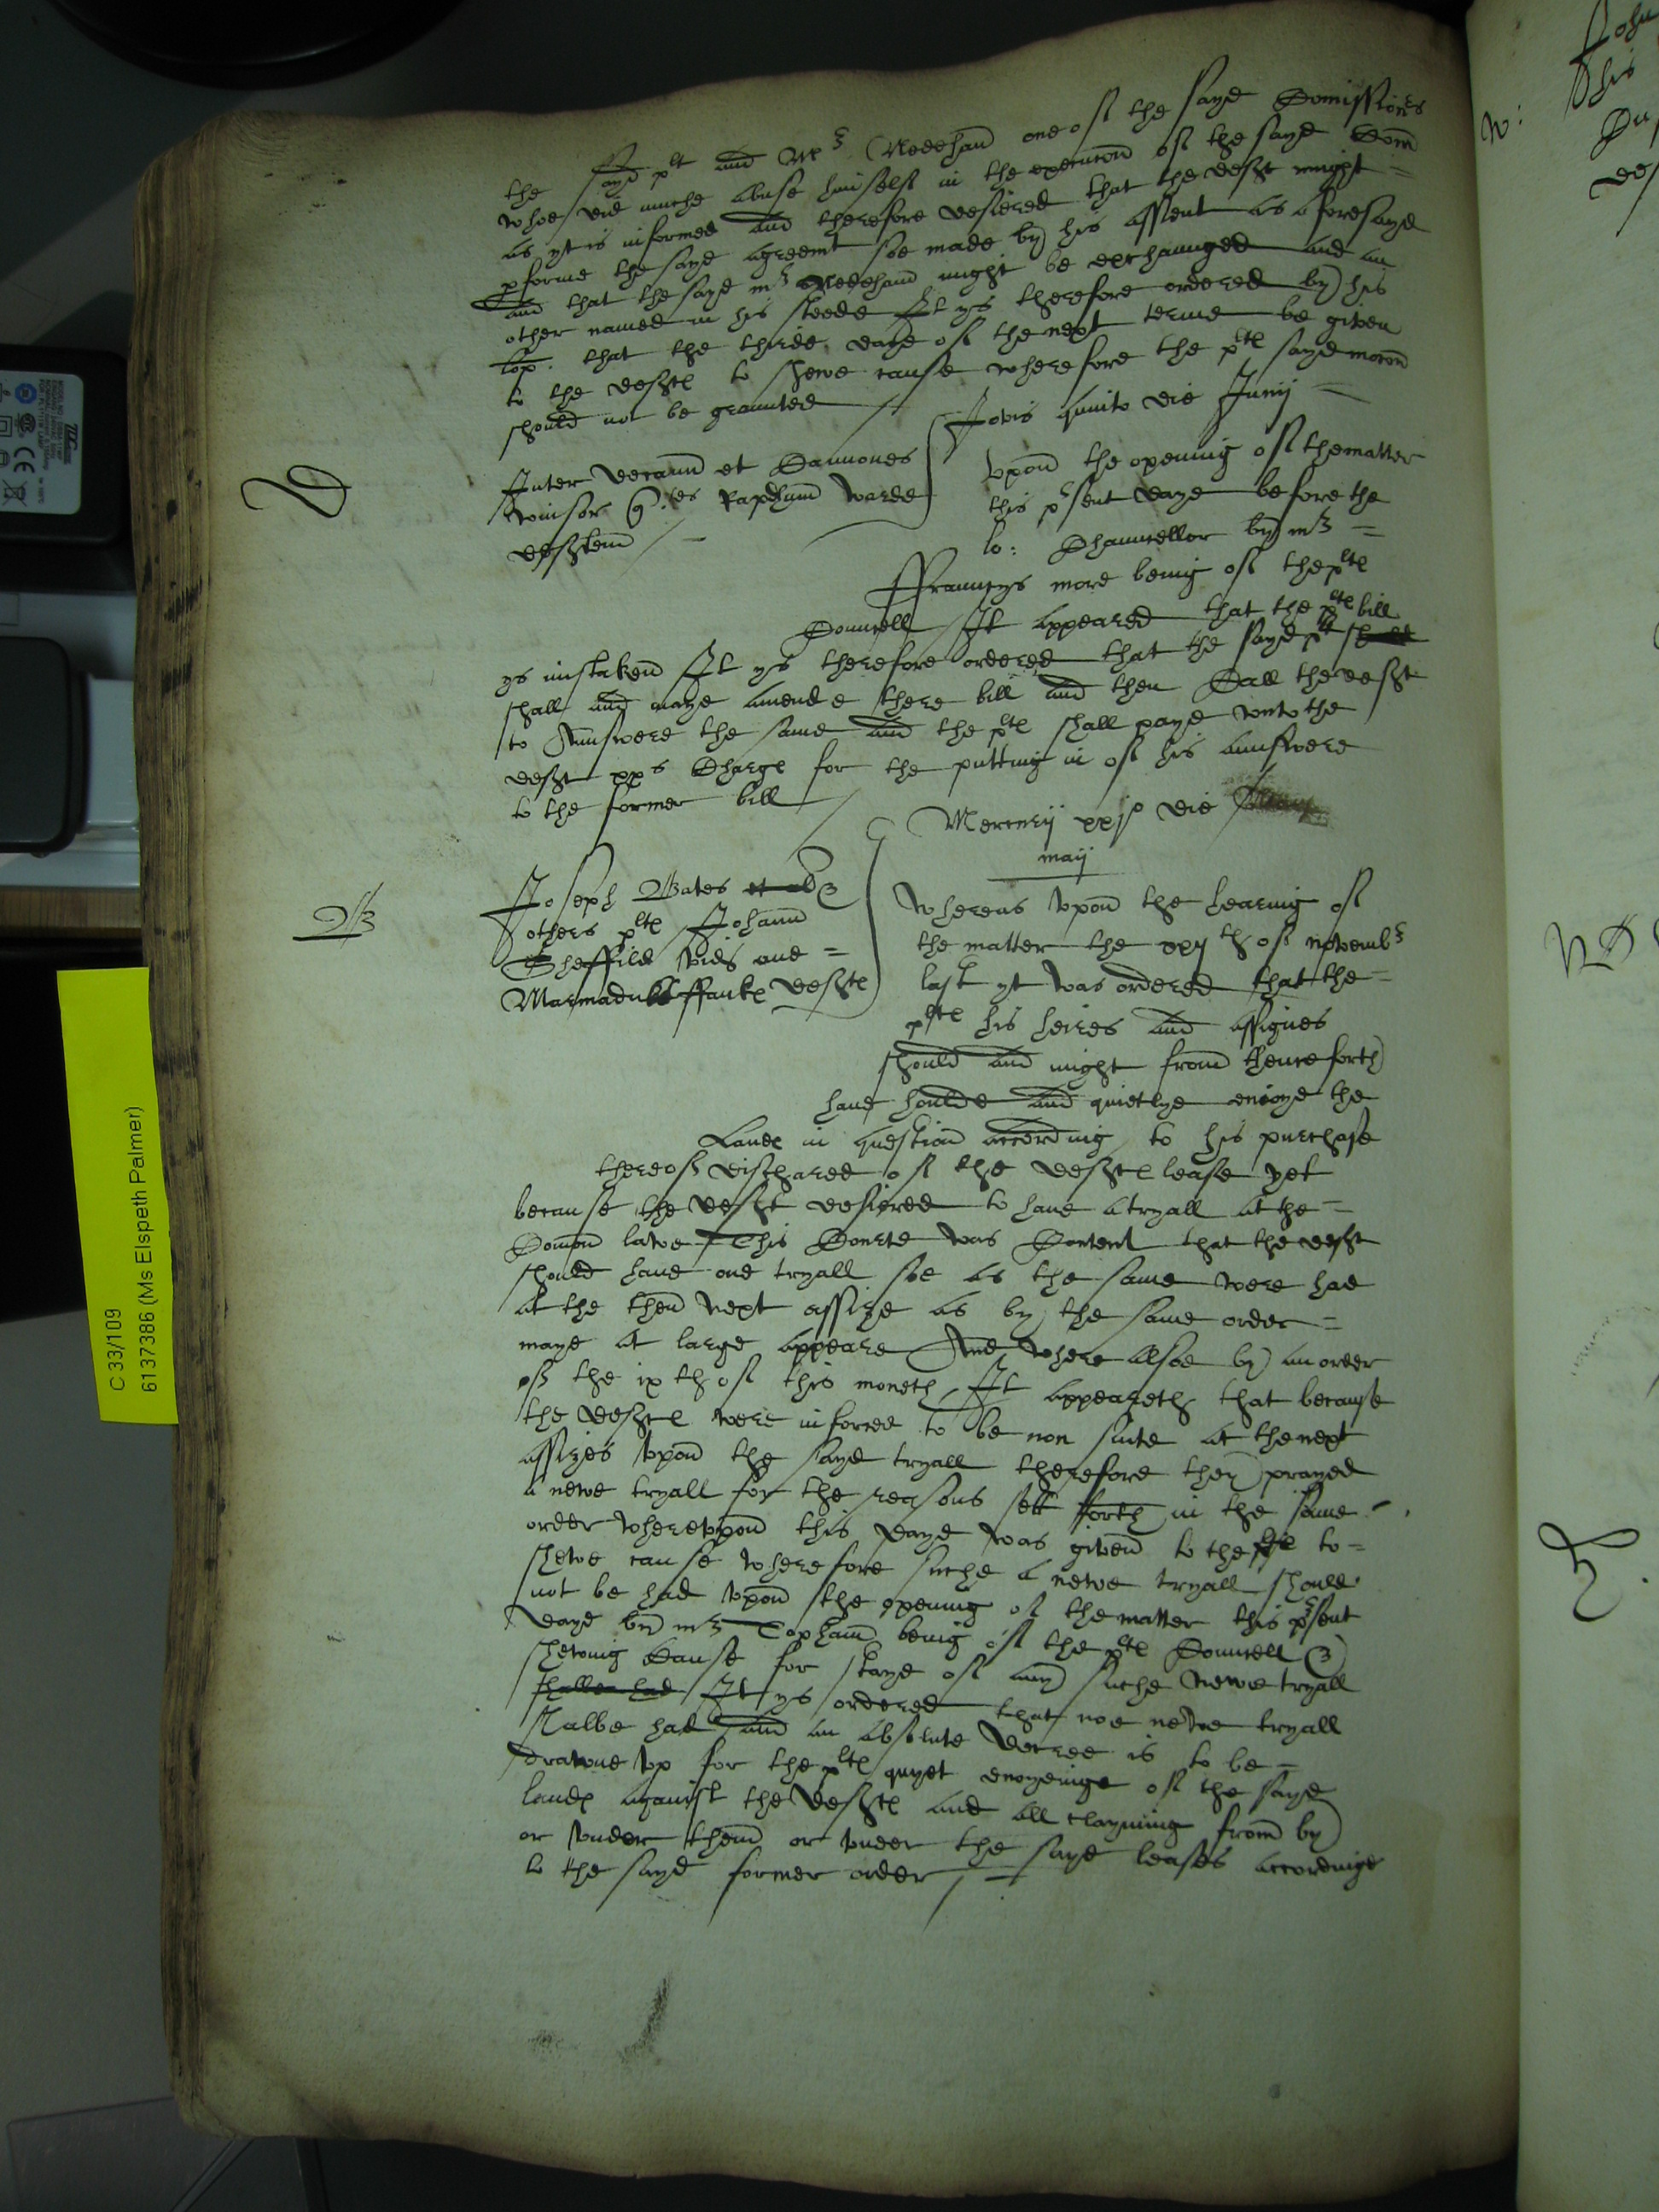 the sayd plt and Mr Nedeham one of the sayd Comissioners
whoe did muche abuse himself in the execucon of the sayd Com
as yt is informed and therefore desiered that the deft might =
pforme the sayd agreemt soe made by his assent as aforesayd
and that the sayd mr Nedeham might be exchaunged and an
other named in his steede It ys therefore ordered by his
lop. that the thirde daye of the next terme be given
to the deftes to shewe cause wherefore the pltes sayd mocon
should not be graunted
Jovis quinto die Junij =
Inter decanu et Canones
Winsor Quer.tes Warde
defftem
D
vpon the opening of the matter
this pr̃sent daye before the
lo: Chauncellor by mr =
ffrauncys more being of the pltes
Councell It appeared that the pltes bill
ys mistaken It ys therefore ordered that the sayd plt shall
shall and maye amende there bill and then Call the deft
to Aunswere the same and the pltes shall paye vnto the
deft xxs Charges for the putting in of his aunswere
to the former bill
Mercurij xxjo die
maij
Joseph Bates et al
others pltes Johann
Sheffild vid and =
Marmaduke ffauks deftes
B
Whereas vpon the hearing of
the matter the xxj th of novembr
last yt was ordered that the =
pltes his heires and assignes
should and might from thenceforth
have houlde and quietlye enioye the
Landes in question according to his purchase
thereof discharged of the deftes lease yet
because the deft desiered to have a tryall at the =
Comon lawe This Courte was Content that the deft
should have one tryall soe as the same were had
at the then next assize as by the same order =
maye at large appeare And where alsoe by an order
of the ix th of this moneth It appeareth that because
the deftes were inforced to be non suite at the next
assizes vpon the sayd tryall therefore they prayed
a newe tryall for the reasons sett forth in the same
order wherevpon this daye was given to the pltes to =
shewe cause wherefore suche a newe tryall should
not be had vpon the opening of the matter this pr̃sent
daye by mr Topham being of the pltes Councell &
shewing Cause for staye of any suche newe tryall
shalbe had It ys ordered that noe newe tryall
shalbe had and an absolute decree is to be =
drawne vp for the pltes quyet enoyeinge of the sayd
landes against the deftes and all clayming from by
or vnder them or vnder the sayd leases accordinge
to the sayd former order
C 33/109
6137386 (Ms Elspeth Palmer)